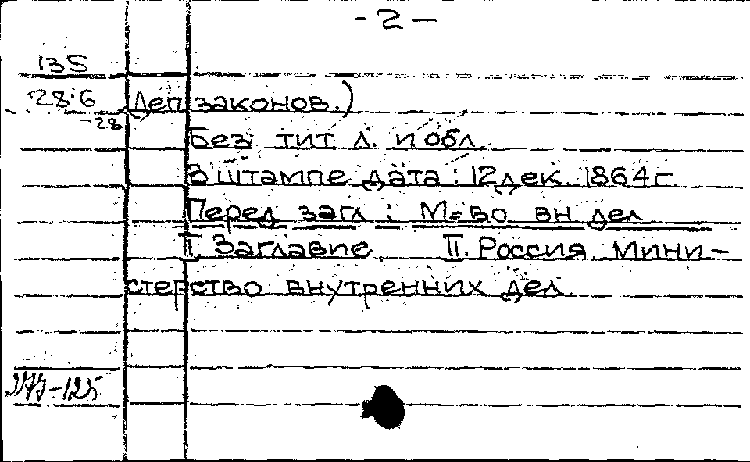 - 2 -
135
28.6 Деп. законов.)
-28
Без тит. л. и обл.
В штампе дата: 12 дек. 1864 г.
Перед загл.: М-во вн. дел.
I. Заглавие. II. Россия. Мини-
стерство внутренних дел.
-125